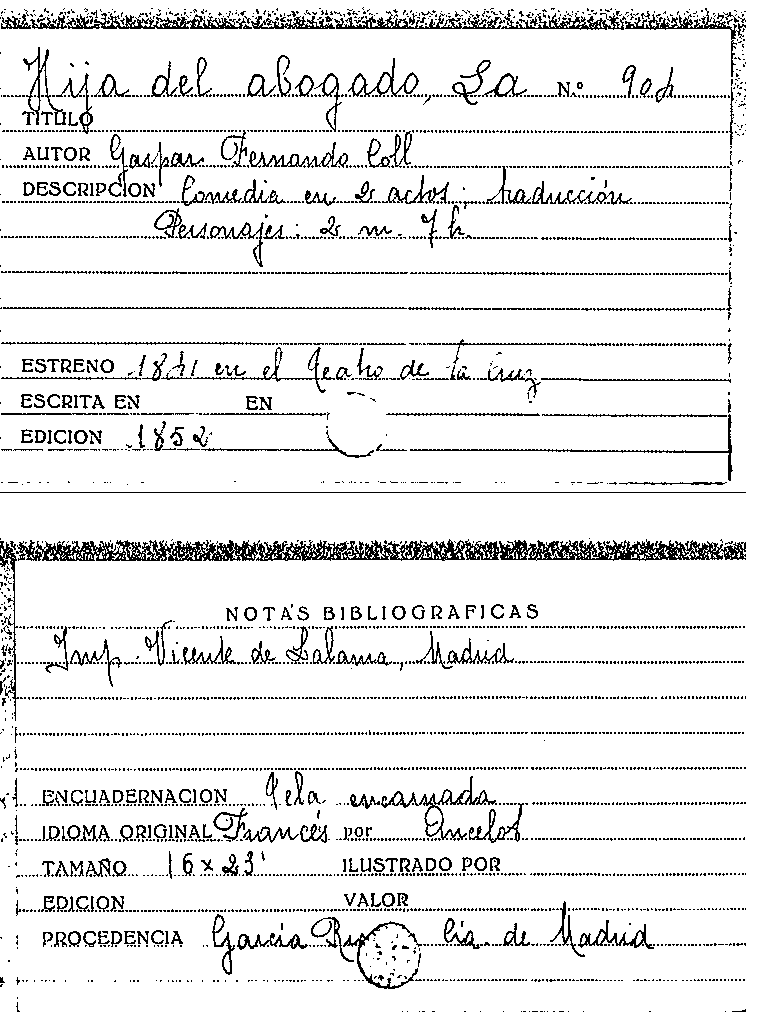 Hija del abogado, La N.º 904
TITULO
AUTOR Gaspar Fernando Coll
DESCRIPCION Comedia en 2 actos; traducción
Personajes: 2 m. 7 h.
ESTRENO 1841 en el Teatro de la Cruz
ESCRITA EN EN
EDICION 1852
NOTAS BIBLIOGRAFICAS
Imp. Vicente de Lalama, Madrid
ENCUADERNACION Tela encarnada
IDIOMA ORIGINAL Francés por Ancelot
TAMAÑO 16 x 23 ILUSTRADO POR
EDICION VALOR
PROCEDENCIA García Cía. de Madrid